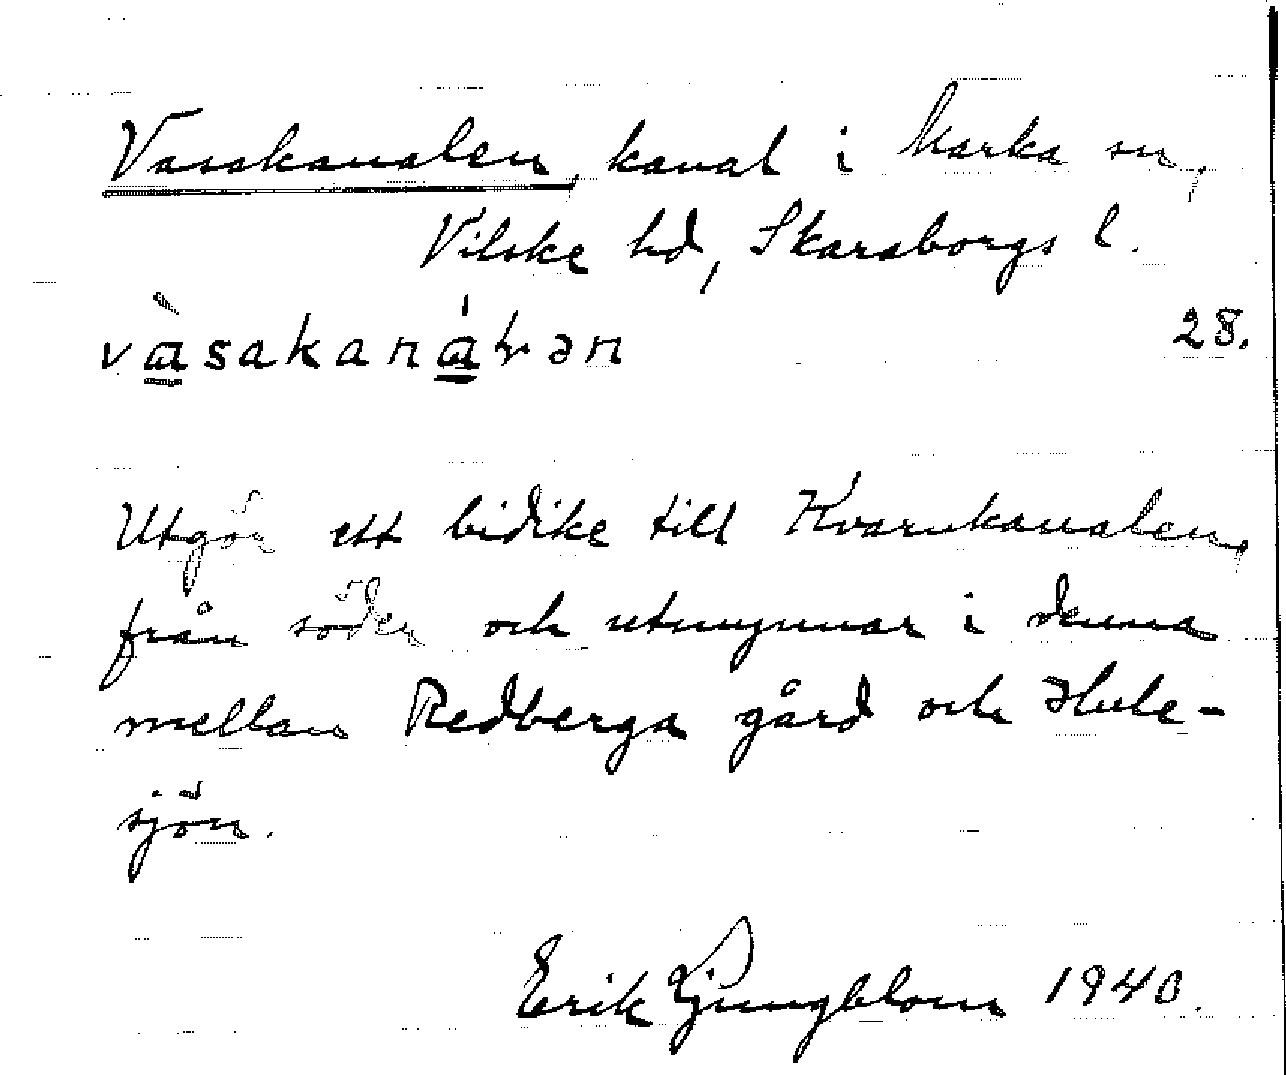 Vasakanalen, kanal i Marka sn,
Vilske hd, Skaraborgs l.
vàsakanálən 28.
Utgör ett bidike till Kvarnkanalen,
från söder och utmynnar i denna
mellan Redberga gård och
sjön.
Erik Ljungblom 1940.